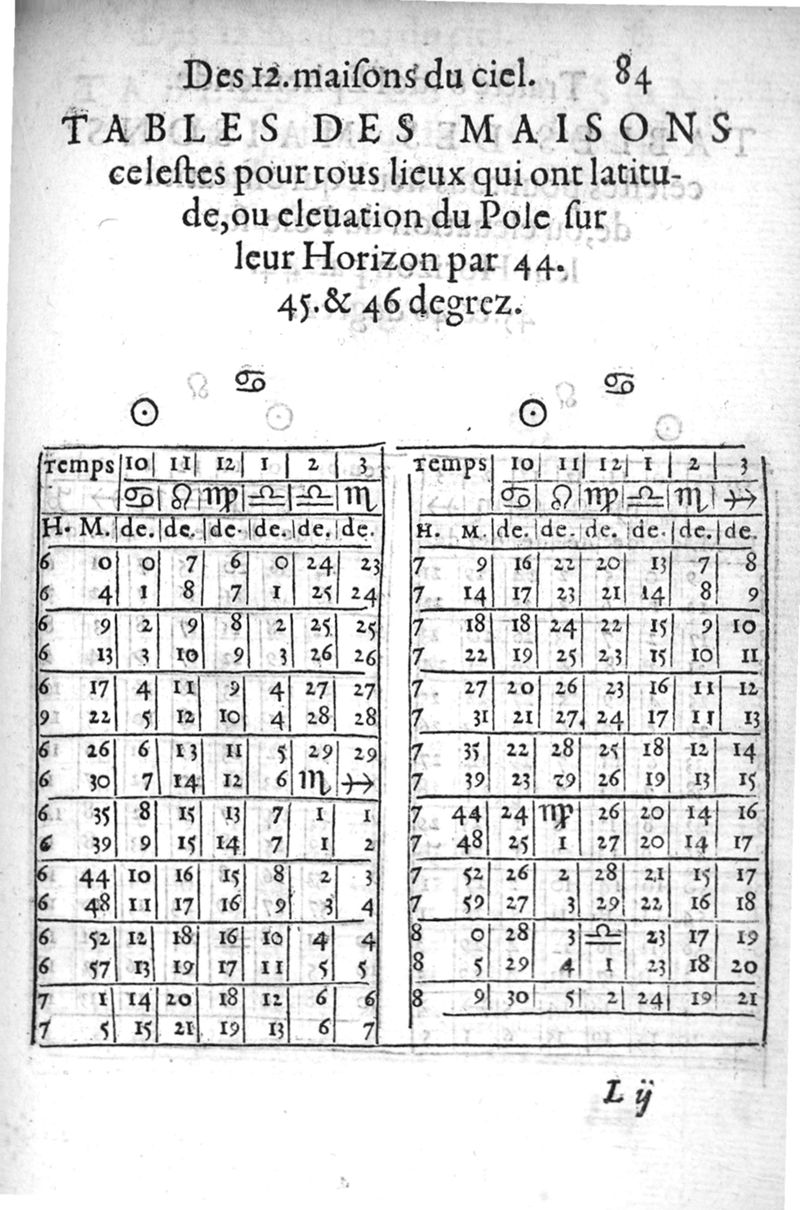 Des 12. maiſons du ciel. 84
TABLES DES MAISONS
celeſtes pour tous lieux qui ont latitu-
de, ou eleuation du Pole ſur
leur Horizon par 44.
45. & 46 degrez.
☉ ♋
Temps 10 11 12 1 2 3
♋ ♌ ♍ ♎ ♎ ♏
H. M. de. de. de. de. de. de.
6 0 0 7 6 0 24 23
6 4 1 8 7 1 25 24
6 9 2 9 8 2 25 25
6 13 3 10 9 3 26 26
6 17 4 11 9 4 27 27
9 22 5 12 10 4 28 28
6 26 6 13 11 5 29 29
6 30 7 14 12 6 ♏ ♐
6 35 8 15 13 7 1 1
6 39 9 15 14 7 1 2
6 44 10 16 15 8 2 3
6 48 11 17 16 9 3 4
6 52 12 18 16 10 4 4
6 57 13 19 17 11 5 5
7 1 14 20 18 12 6 6
7 5 15 21 19 13 6 7
☉ ♋
Temps 10 11 12 1 2 3
♋ ♌ ♍ ♎ ♏ ♐
H. M. de. de. de. de. de. de.
7 9 16 22 20 13 7 8
7 14 17 23 21 14 8 9
7 18 18 24 22 15 9 10
7 22 19 25 23 15 10 11
7 27 20 26 23 16 11 12
7 31 21 27 24 17 11 13
7 35 22 28 25 18 12 14
7 39 23 29 26 19 13 15
7 44 24 ♍ 26 20 14 16
7 48 25 1 27 20 14 17
7 52 26 2 28 21 15 17
7 59 27 3 29 22 16 18
8 0 28 3 ♎ 23 17 19
8 5 29 4 1 23 18 20
8 9 30 5 2 24 19 21
L ij